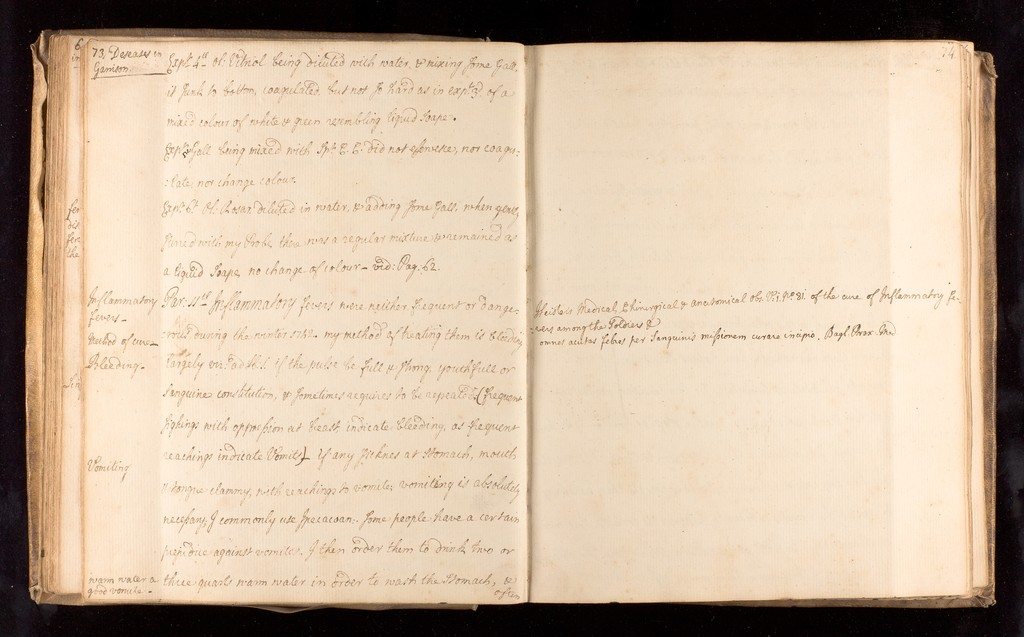 73, Deseases in
Garrison
Exp.t 4th Ol: Vitriol being diluted with water, & mixing some Gall,
it sunk to bottom, coagulated, but not so hard as in exp.t 3d. of a
mixd colour of white & green resembling liquid Soape.
Exp.t Gall being mixed with Spt. C. C. did not effervesce, nor coagu-
-late, nor change colour.
Exp.t 6th Ol: Rosar: diluted in water, & adding some Gall, when gently
stirred with my Probe there was a regular mixture & remained as
a liquid Soape, no change of colour - vid: Pag. 62.
Inflammatory
fevers -
Par: 11th Inflammatory fevers were neither frequent or dange-
method of cure -
-rous during the winter 1742. my method of treating them is bleeding
Bleeding -
largely if the pulse be full & strong, youthfull or
Sanguine constitution, & sometimes requires to be repeated (frequent
sighings with oppression at breast indicate bleeding, as frequent
reachings indicate Vomits) if any sicknes at Stomach, mouth
Vomiting
& tongue clammy, with reachings to vomite, vomiting is absolutely
necessary, I commonly use Ipecacoan: Some people have a certain
prejudice against vomites. I then order them to drink two or
warm water a
good vomite -
three quarts warm water in order to wash the Stomach, &
often
74
Heisters Medical, Chirurgical & anatomical Obs: 81. of the cure of Inflammatory fe-
-vers among the Soldiers &
omnes acutas febres per Sanguinis missionem curare incipio. Bagl: Prax: